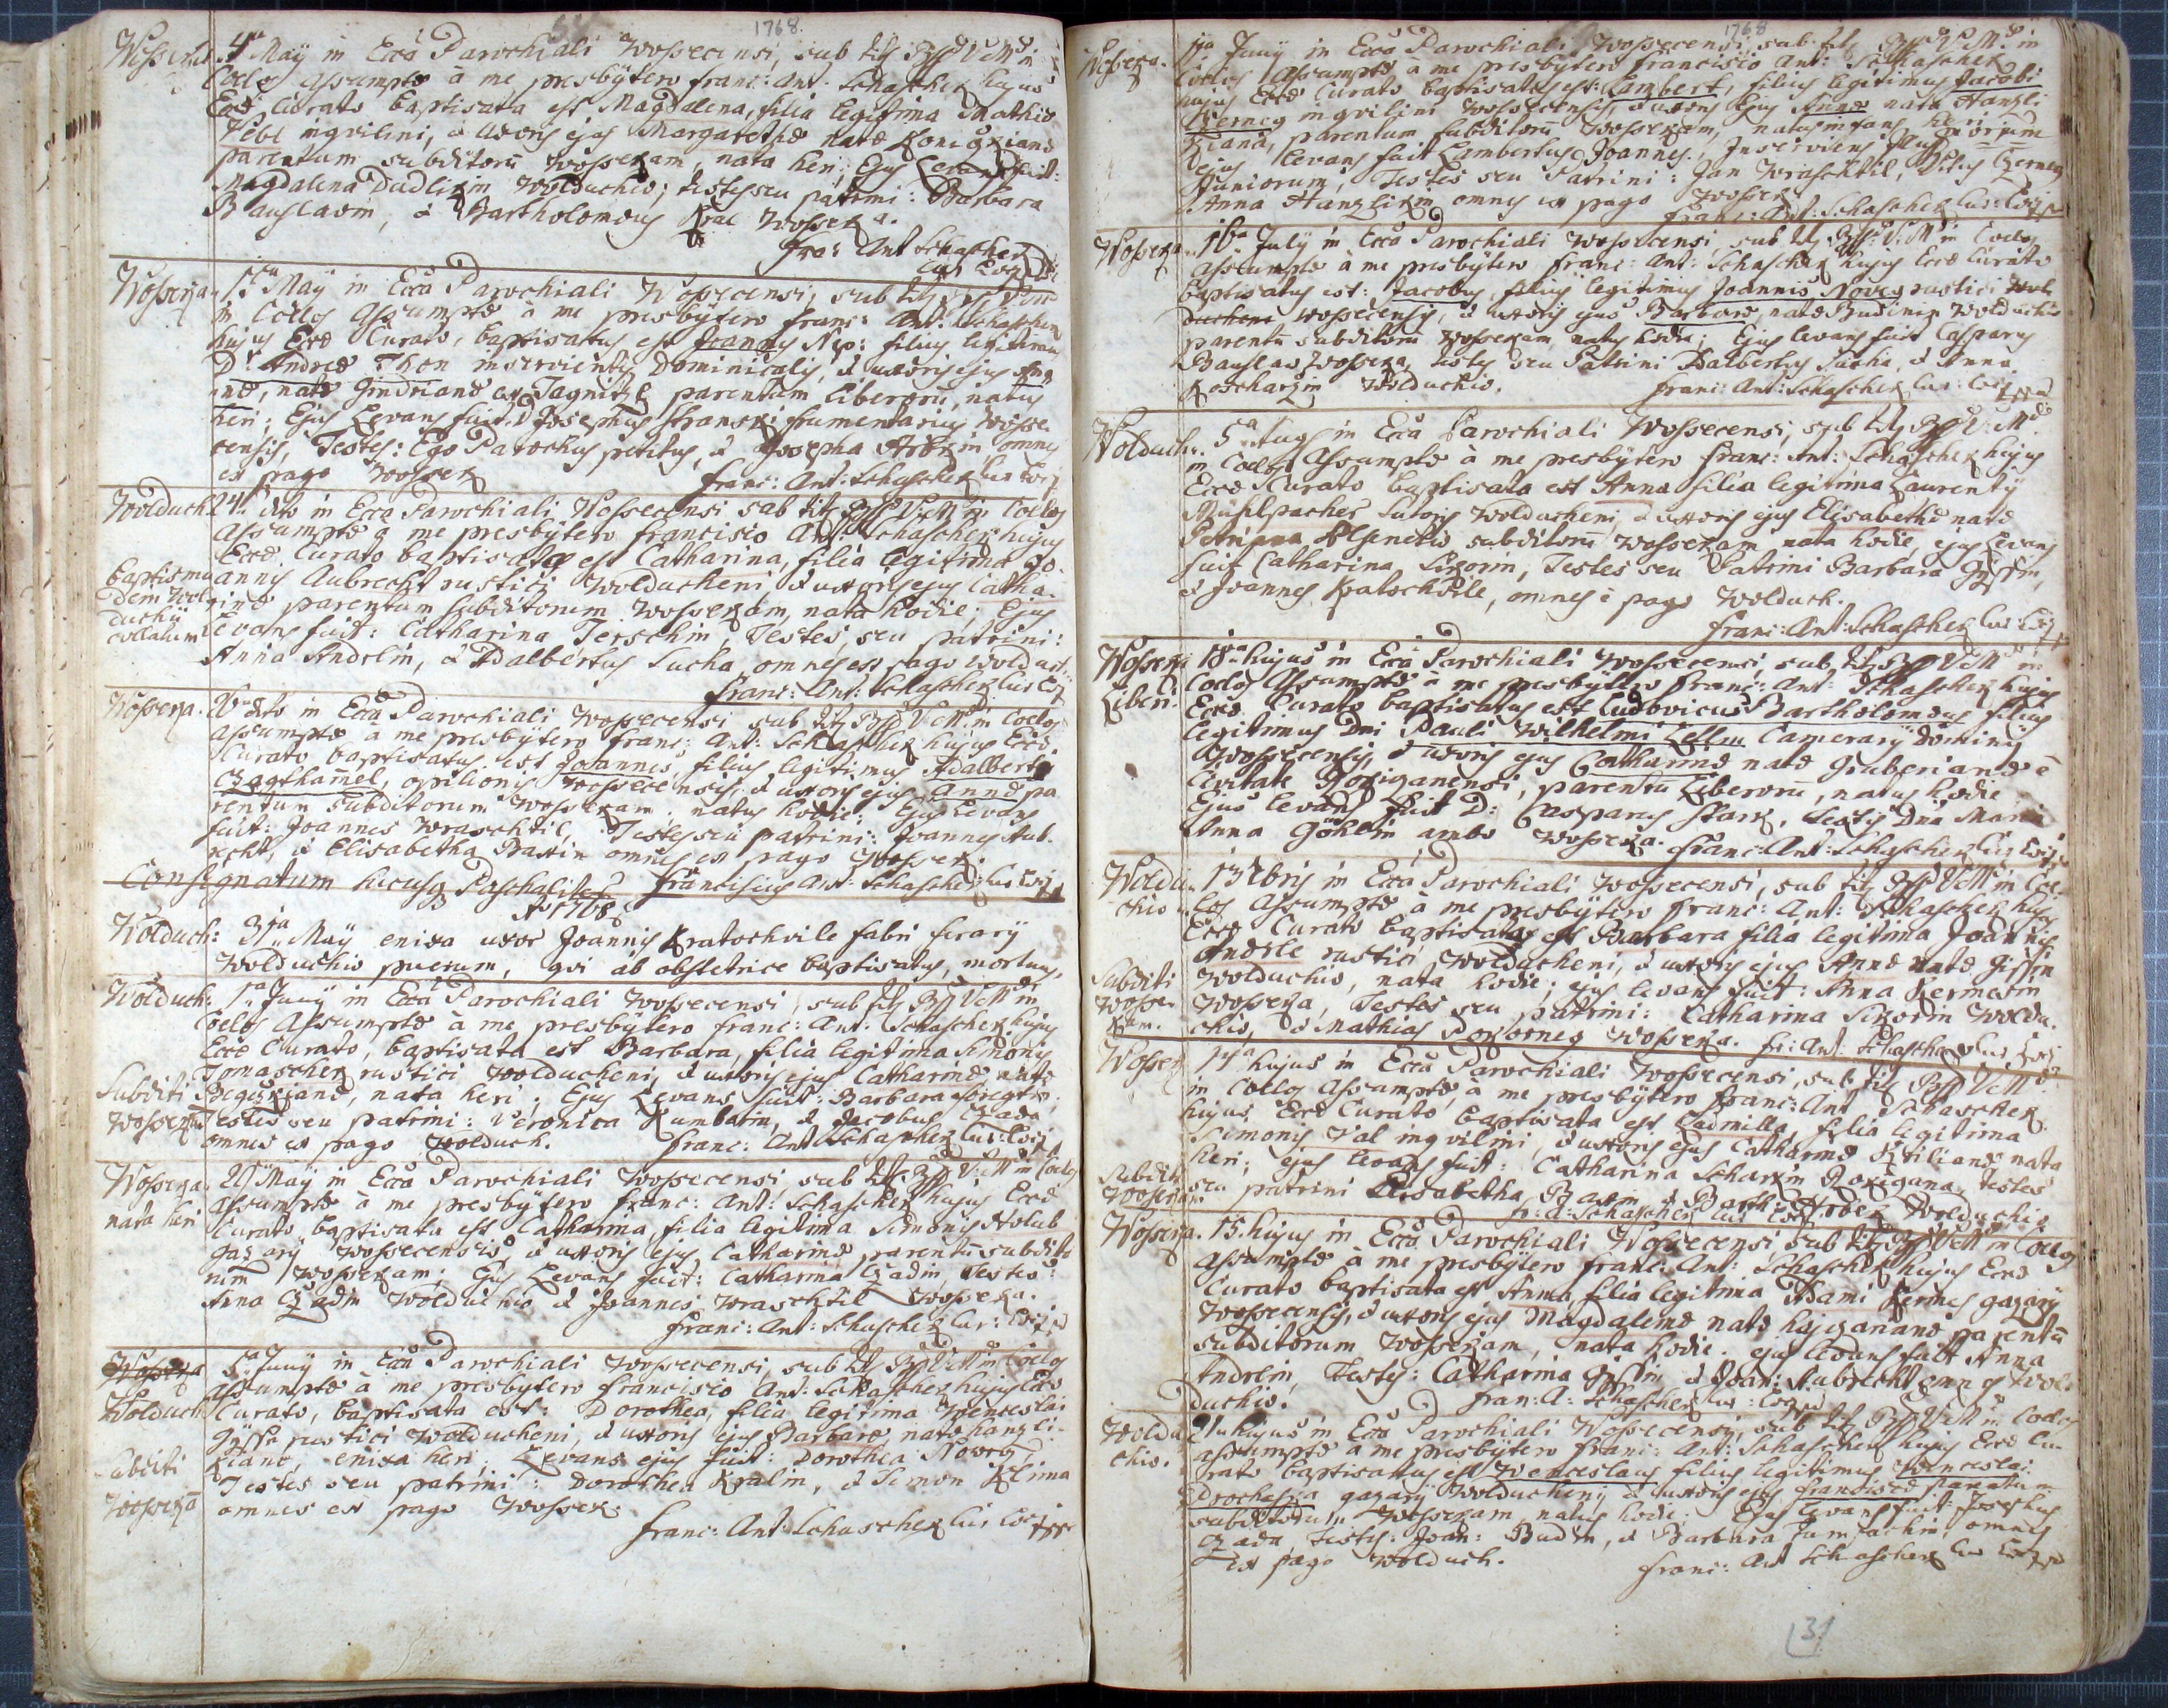 1768.
Wossera. 4ta Maÿ in Ecca Parochiali Wossecensi, sub tit: Bssae V: M: in
Coelos assumptae à me presbÿtero Franc: Ant: Schascher hujus
Eccae Curato baptisata est Magdalena, filia legitima Mathiae
Pebl inqvilini, & uxoris ejus Margarethae natae
parentum subditorũ Wosseram, nata heri; Ejus Levans fuit:
Magdalena Dudlirin Wolduchio; testes seu patrini: Barbara
Bauslaoin, & Bartholomeus Kral Wossera.
Fra: Ant Schascher
Cur Loci
Wossera. Maÿ in Ecca Parochiali Wossecensi, sub tit:
in Coelos assumptae à me presbÿtero Franc: Ant: Schascher
hujus Eccae Curato, baptisatus est Joannes Nep: filius legitimus
D: Andreae Thon inservientis Dominicalis, & uxoris ejus An-
nae, natae Gindrianae ex parentum liberorũ, natus
heri; Ejus Levans fuit D Josephus Stranski frumentarius Wosse-
censis, Testes: Ego Parochus petitus, & Josepha omnes
ex pago Wosser
Franc: Ant: Schascher Cur Loci
Wolduch 24ta dto in Ecca Parochiali Wossecensi sub tit: Bssae V: M: in Coelos
assumptae à me presbÿtero Francisco Ant: Schascher hujus
Eccae Curato baptisata est Catharina, filia legitima Jo-
baptismu annis Aubrecht rustici Wolducheni, & uxoris ejus Catha-
dem Wol- rinae parentum subditorum Wosseram, nata hodie; Ejus
duchÿ
collatum Levans fuit: Catharina Terschin, Testes, seu patrini:
Anna Andrlin, & Adalbertus Sucha omnes ex pago Wolduch
Franc: Ant: Schascher Cur Loci
Wossera. dto in Ecca Parochiali Wossecensi sub tit: Bssae V: M: in Coelos
assumptae à me presbÿtero Franc: Ant: Schascher hujus Eccae
Curato baptisatus est Joannes filius legitimus Adalberti
Czagthamel, opilionis Wossecensis, & uxoris ejus Annae pa-
rentum subditorum Wosseram, natus hodie; Ejus Levans
fuit: Joannes Wraschtil, Testes seu patrini: Joannes Aub-
recht, & Elisabetha Baxin omnes ex pago Wosser.
Consignatum hucusq Paschalites Franciscus Ant: Schascher Cur Loci
Ao 1768
Wolduch: 31ma Maÿ enixa uxor Joannis Kratochvile fabri ferarÿ
Wolduchio puerum, qvi ab obstetrice baptisatus, mortuus,
Wolduch: 1ma Junÿ in Ecca Parochiali Wossecensi, sub tit: Bssae V: M: in
Coelos Assumptae à me presbÿtero Franc: Ant: Schascher hujus
Eccae Curato, baptisata est Barbara, filia legitima Simonis
Tomascher rustici Wolducheni, & uxoris ejus Catharinae natae
Subditi nata heri; Ejus Levans fuit: Barbara
Wosseram Testes seu patrini: Veronica Kumbarin, & Jacobus Czada
omnes ex pago Wolduch. Franc: Ant Schascher Cur: Loci
Wossera. Maÿ in Ecca Parochiali Wossecensi, sub tit: Bssae V: M: in Coelos
nata heri assumptae à me presbÿtero Franc: Ant: Schascher hujus Eccae
Curato baptisata est Catharina, filia legitima Simonis Holub
gazarÿ Wossecensis, & uxoris ejus Catharinae parentũ subdito-
rum Wosseram; Ejus Levans fuit: Catharina Czadin, Testes:
Anna Czadin Wolduchio & Joannes Wraschtil Wossera.
Franc: Ant: Schascher Cur: Loci
Wossera 5ta Junÿ in Ecca Parochiali Wossecensi, sub tit: Bssae V: M: in Coelos
assumptae à me presbÿtero Francisco Ant: Schascher hujus Eccae
Wolduch Curato, baptisata est: Dorothea, filia legitima Wenceslai
rustici Wolducheni, & uxoris ejus Barbarae natae Hanzli-
Subditi rianae, enixa heri; Levans ejus fuit: Dorothea Noweg
Testes seu patrini: Dorothea Kralin, & Simon Klima
Wosserã omnes ex pago Wosser.
Franc: Ant: Schascher Cur Loci
1768
Wossera. Junÿ in Ecca Parochiali Wossecensi, sub tit: Bssae V: M: in
Coelos Assumptae à me presbÿtero Francisco Ant: Schascher
hujus Eccae Curato baptisatus est: Lambert, filius legitimus Jacobi
Czerneg inqvilini Wossecensis & uxoris ejus Annae natae Hanzli-
riana, parentum subditorũ Wosseram, natus infans heri
ejus Levans fuit Lambertus Joannes, Inserviens
Juniorum, Testes seu Patrini: Jan Wraschtil, Vitus Czerneg
Anna Hanzlirin omnes ex pago Wosser
Franc: Ant: Schascher Cur: Loci
Wossera. 16ta Julÿ in Ecca Parochiali Wossecensi sub tit: Bssae V: M: in Coelos
Assumptae à me presbÿtero Franc: Ant: Schascher hujus Eccae Curato
baptisatus est: Jacobus, filius legitimus Joannis Noveg rustici Wol-
ducheni Wossecensis, & uxoris ejus Barbarae, natae Budinin Wolduchio
parentũ subditorũ Wosseram, natus hodie; Ejus levans fuit Casparus
Bauslao Wossera, testes seu Patrini Adalbertus Sucha, & Anna
Koscharzin Wolduchio. Franc: Ant: Schascher Cur: Loci
Wolduch. 5ta Aug in Ecca Parochiali Wossecensi, sub tit: Bssae V: M:
in Coelos Assumptae à me presbÿtero Franc: Ant: Schascher hujus
Eccae Curato baptisata est Anna filia legitima Laurentÿ
Mühlpacher Sutoris Wolducheni & uxoris ejus Elisabethae natae
subditorũ Wosseram nata hodie, ejus Levans
fuit Catharina Sikorin, Testes seu Patrini Barbara Gissin,
& Joannes Kratochvile, omnes è pago Wolduch.
Franc: Ant: Schascher Cur Loci
Wossera 18va hujus in Ecca Parochiali Wossecensi, sub tit: Bssae V: M: in
Liberi. Coelos Assumptae à me presbÿtero Franc: Ant: Schascher hujus
Eccae Curato baptisatus est Ludovicus Bartholomeus filius
legitimus Dni Pauli Wilhelmi Camerarÿ Dominÿ
Wossecensis, & uxoris ejus Catharinae natae Gruberianae è
Civitate Rokizanensi, parentũ Liberorũ, natus hodie
Ejus levans fuit D: Casparus Stark, testis Dna Maria
Anna Gökelin ambo Wossera. Franc: Ant: Schascher Cur Loci
Woldu- 13 7bris in Ecca Parochiali Wossecensi, sub tit: Bssae V: M: in Coe-
chio los Assumptae à me presbÿtero Franc: Ant: Schascher hujus
Eccae Curato baptisata est Barbara filia legitima Joannis
Andrle rustici Wolducheni, & uxoris ejus Annae natae Gissin
Subditi Wolduchio, nata hodie; ejus levans fuit: Anna Kermesin
Wosse- Wossera, Testes seu patrini: Catharina Sikorin Woldu-
ram. chio, & Mathias Pokorneg Wossera. Fr: Ant: Schascher Cur Loci
Wosser 14ta hujus in Ecca Parochiali Wossecensi, sub tit: Bssae V: M:
in Coelos Assumptae, à me presbÿtero Franc: Ant Schascher
hujus Eccae Curato, baptisata est Ludmilla, filia legitima
Simonis Val inqvilini, & uxoris ejus Catharinae nata
heri; ejus levans fuit: Catharina Scharkin Rokizana, testes
Subditi seu patrini Elisabetha Baxin & Barth: Wolduchio
Wosseram. Fr: A: Schascher Cur Loci
Wossera. 15. hujus in Ecca Parochiali Wossecensi sub tit: Bssae V: M: in Coelos
Assumptae à me presbÿtero Franc: Ant: Schascher hujus Eccae
Curato baptisata est Anna filia legitima Adami Kermes gazarÿ
Wossecensis, & uxoris ejus Magdalenae natae parentũ
subditorum Wosseram, nata hodie. ejus levans fuit Anna
Andrlin, Testes: Catharina Gissin & Joan: Aubrecht omnes Wol-
duchio. Fran: A: Schascher Cur: Loci
Woldu- hujus in Ecca Parochiali Wossecensi, sub tit: Bssae V: M: in Coelos
chio. assumptae à me presbÿtero Franc: Ant: Schascher hujus Eccae Cu-
rato baptisatus est Wenceslaus filius legitimus Wenceslai
Prochaska gazarÿ Wolducheni, & uxoris ejus Franciscae parentum
subditorum Wosseram, natus hodie. Ejus levans fuit Josephus
Czada, testes: Joan: Budin, & Barbara omnes
ex pago Wolduch. Franc: Ant Schascher Cur Loci
31